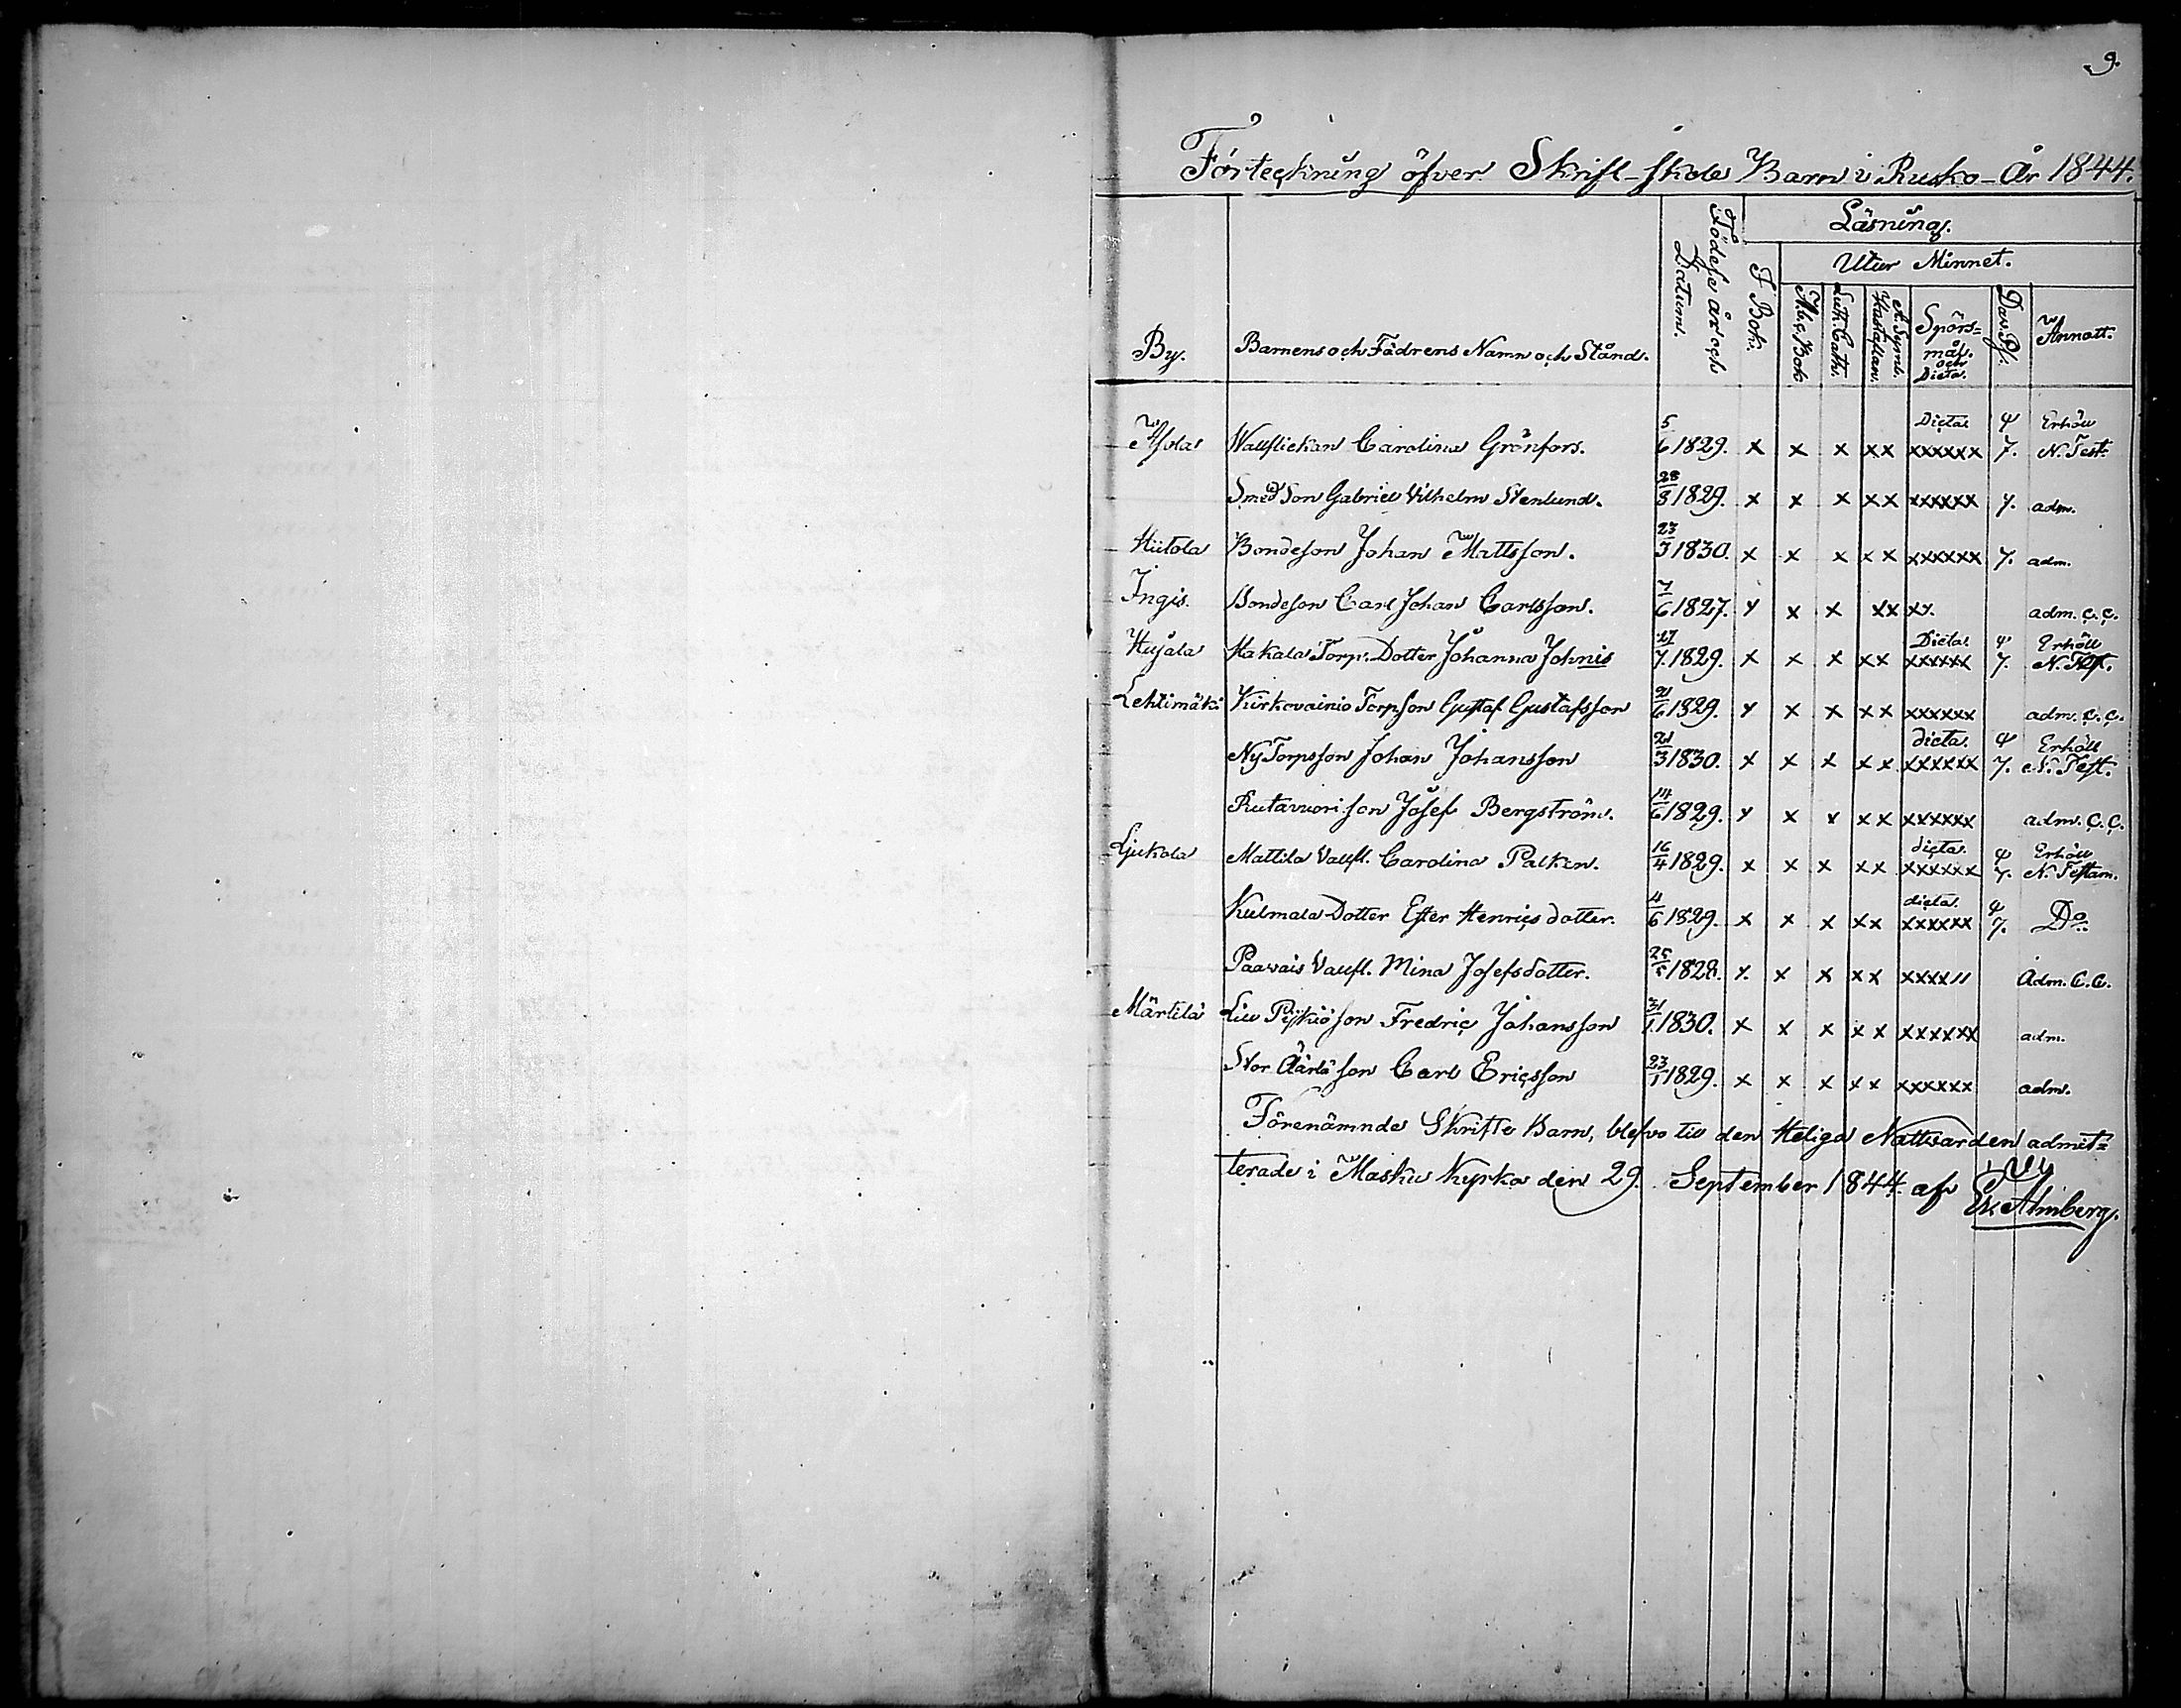 9.
Förteckning öfver Skrift-skole Barn i Rusko År 1844.
By. Barnens och Fädrens Namn och Stånd. Födelse år och Datum. Läsning.
I Bok. Utur Minnet.
Abc Bok Luth. Cath. A. Symb. Hustaflan. Spörsmål. och Dicta. Dav. Ps. Annott.
Dicta. ψ Erhöll
Wallflickan Carolina Grönfors. 5/6 1829. x x x xx xxxxxx 7. N. Test.
Smed Son Gabriel Vilhelm Stenlund. 28/8 1829. x x x xx xxxxxx 7. adm.
Hiitola Bondeson Johan Mattsson. 23/3 1830. x x x xx xxxxxx 7. adm.
Ingis. Bondeson Carl Johan Carlsson. 7/6 1827. y x x xx xy. adm. c. c.
Dicta. ψ Erhöll
Hujala Makala Torp. Dotter Johanna Johnis 27/7. 1829. x x x xx xxxxxx 7.
Lehtimäki Kirkovainio Torpson Gustaf Gustafsson 21/6 1829. y x x xx xxxxxx adm. c. c.
dicta. ψ Erhöll
Ny Torpsson Johan Johansson 21/3 1830. x x x xx xxxxxx 7. N. Test.
Rutavuori son Josef Bergström. 14/6 1829. y x x xx xxxxxx adm. C. C.
dicta. ψ Erhöll
Ljukola Mattila Vallfl. Carolina Palken. 16/4 1829. x x x xx xxxxxx 7. N. Testam.
dicta. ψ
Kulmala Dotter Ester Henricsdotter. 4/6 1829. x x x xx xxxxxx 7. Do
Paavais Vallfl. Mina Josefsdotter. 25/5 1828. y. x x xx xxxx11 Adm. C. C.
Märtilä Lill Pyhiö son Fredric Johansson 31/1. 1830. x x x xx xxxxxx adm.
Stor Äärlä son Carl Ericsson 23/1 1829. x x x xx xxxxxx adm.
Förenämnde Skrifte Barn, blefvo till den Heliga Nattvarden admit=
terade i Masku Kyrka den 29. September 1844. af Ek. Almberg.